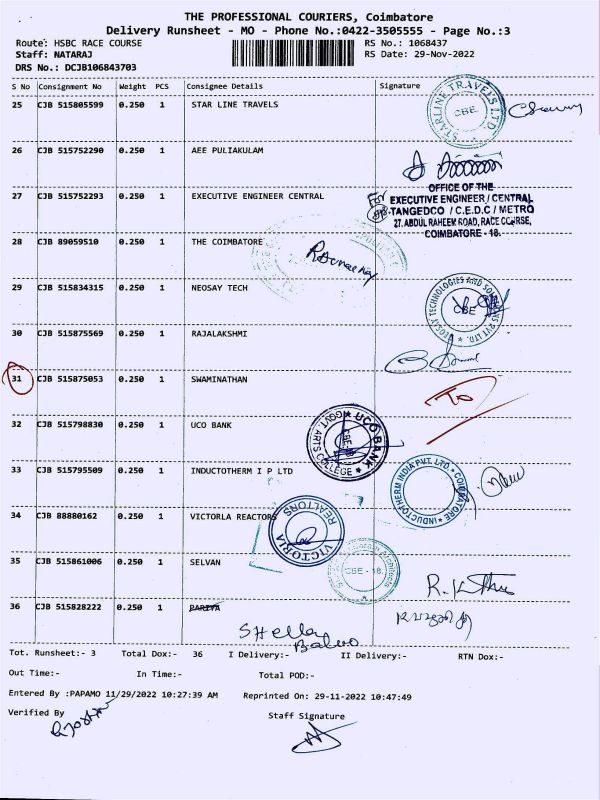 THE PROFESSIONAL COURIERS, Coimbatore
Delivery Runsheet - MO - Phone No.:0422-3505555 - Page No.:3
Route: HSBC RACE COURSE RS No.: 1068437
Staff: NATARAJ RS Date: 29-Nov-2022
DRS No.: DCJB106843703
S No Consignment No Weight PCS Consignee Details Signature
25 CJB 515805599 0.250 1 STAR LINE TRAVELS
STARLINE TRAVELS LTD. CBE
26 CJB 515752290 0.250 1 AEE PULIAKULAM
27 CJB 515752293 0.250 1 EXECUTIVE ENGINEER CENTRAL
For
OFFICE OF THE
EXECUTIVE ENGINEER / CENTRAL
TANGEDCO / C.E.D.C / METRO
27, ABDUL RAHEEM ROAD, RACE COURSE,
COIMBATORE - 18.
28 CJB 89059510 0.250 1 THE COIMBATORE
29 CJB 515834315 0.250 1 NEOSAY TECH
TECHNOLOGIES AND PVT. LTD. CBE
30 CJB 515875569 0.250 1 RAJALAKSHMI
31 CJB 515875053 0.250 1 SWAMINATHAN
32 CJB 515798830 0.250 1 UCO BANK
UCO BANK GOVT. ARTS COLLEGE
33 CJB 515795509 0.250 1 INDUCTOTHERM I P LTD
INDUCTOTHERM INDIA PVT. LTD COIMBATORE
34 CJB 88880162 0.250 1 VICTORLA REACTORS
VICTORIA REALTORS
35 CJB 515861006 0.250 1 SELVAN
CBE - 18.
36 CJB 515828222 0.250 1
Tot. Runsheet:- 3 Total Dox:- 36 I Delivery:- II Delivery:- RTN Dox:-
Out Time:- In Time:- Total POD:-
Entered By :PAPAMO 11/29/2022 10:27:39 AM Reprinted On: 29-11-2022 10:47:49
Verified By Staff Signature